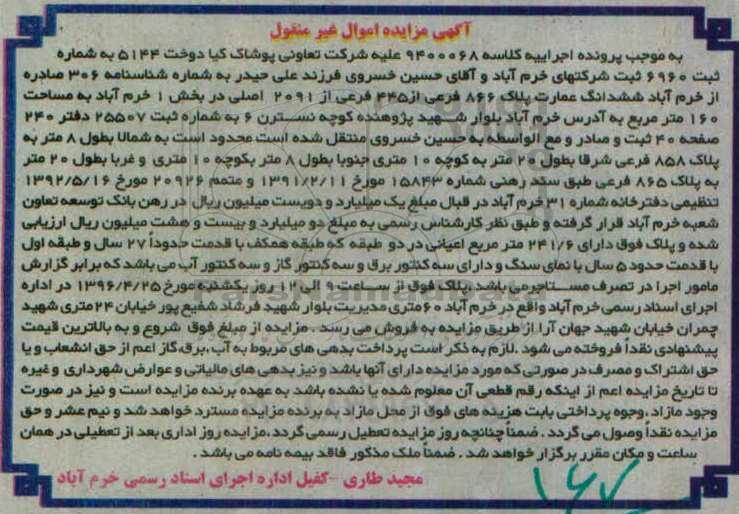 آگهی مزایده اموال غیر منقول
به موجب پرونده اجراییه کلاسه ۹۴۰۰۰۶۸ علیه شرکت تعاونی پوشاک کیا دوخت ۵۱۴۴ به شماره
ثبت ۶۹۶۰ ثبت شرکتهای خرم آباد و آقای حسین خسروی فرزند علی حیدر به شماره شناسنامه ۳۰۶ صادره
از خرم آباد ششدانگ عمارت پلاک ۸۶۶ فرعی از۴۴۵ فرعی از ۲۰۹۱ اصلی در بخش ۱ خرم آباد به مساحت
۱۶۰ متر مربع به آدرس خرم آباد بلوار شهید پژوهنده کوچه نسترن ۶ به شماره ثبت ۲۵۵۰۷ دفتر ۲۴۰
صفحه ۴۰ ثبت و صادر و مع الواسطه به حسین خسروی منتقل شده است محدود است به شمالا بطول ۸ متر به
پلاک ۸۵۸ فرعی شرقا بطول ۲۰ متر به کوچه ۱۰ متری جنوبا بطول ۸ متر بکوچه ۱۰ متری و غربا بطول ۲۰ متر
به پلاک ۸۶۵ فرعی طبق سند رهنی شماره ۱۵۸۴۳ مورخ ۱۳۹۱/۲/۱۱ و متمم ۲۰۹۲۶ مورخ ۱۳۹۲/۵/۱۶
تنظیمی دفترخانه شماره ۳۱ خرم آباد در قبال مبلغ یک میلیارد و دویست میلیون ریال در رهن بانک توسعه تعاون
شعبه خرم آباد قرار گرفته و طبق نظر کارشناس رسمی به مبلغ دو میلیارد و بیست و هشت میلیون ریال ارزیابی
شده و پلاک فوق دارای ۲۴۱/۶ متر مربع اعیانی در دو طبقه که طبقه همکف با قدمت حدوداً ۲۷ سال و طبقه اول
با قدمت حدود ۵ سال با نمای سنگ و دارای سه کنتور برق و سه کنتور گاز و سه کنتور آب می باشد که برابر گزارش
مامور اجرا در تصرف مستاجر می باشد. پلاک فوق از ساعت ۹ الی ۱۲ روز یکشنبه مورخ ۱۳۹۶/۴/۲۵ در اداره
اجرای اسناد رسمی خرم آباد واقع در خرم آباد ۶۰ متری مدیریت بلوار شهید فرشاد شفیع پور خیابان ۲۴ متری شهید
چمران خیابان شهید جهان آرا از طریق مزایده به فروش می رسد . مزایده از مبلغ فوق شروع و به بالاترین قیمت
پیشنهادی نقداً فروخته می شود .لازم به ذکر است پرداخت بدهی های مربوط به آب،برق،گاز اعم از حق انشعاب و یا
حق اشتراک و مصرف در صورتی که مورد مزایده دارای آنها باشد و نیز بدهی های مالیاتی و عوارض شهرداری و غیره
تا تاریخ مزایده اعم از اینکه رقم قطعی آن معلوم شده یا نشده باشد به عهده برنده مزایده است و نیز در صورت
وجود مازاد ،وجوه پرداختی بابت هزینه های فوق از محل مازاد به برنده مزایده مسترد خواهد شد و نیم عشر و حق
مزایده نقداً وصول می گردد . ضمناً چنانچه روز مزایده تعطیل رسمی گردد،مزایده روز اداری بعد از تعطیلی در همان
ساعت و مکان مقرر برگزار خواهد شد . ضمناً ملک مذکور فاقد بیمه نامه می باشد .
مجید طاری -کفیل اداره اجرای اسناد رسمی خرم آباد